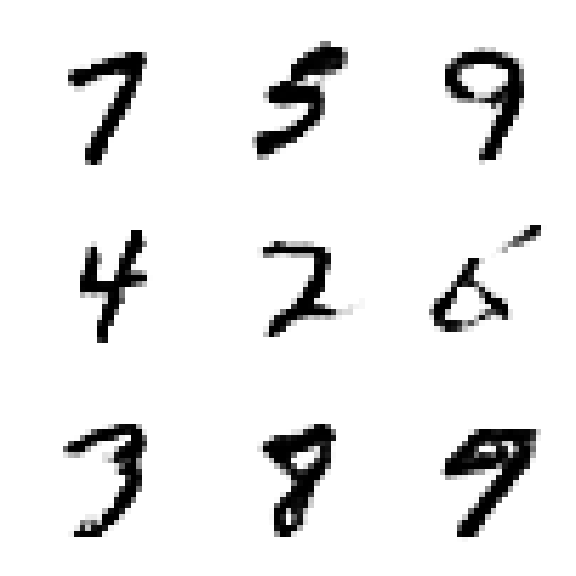 7 5 9
4 2 6
3 8 9